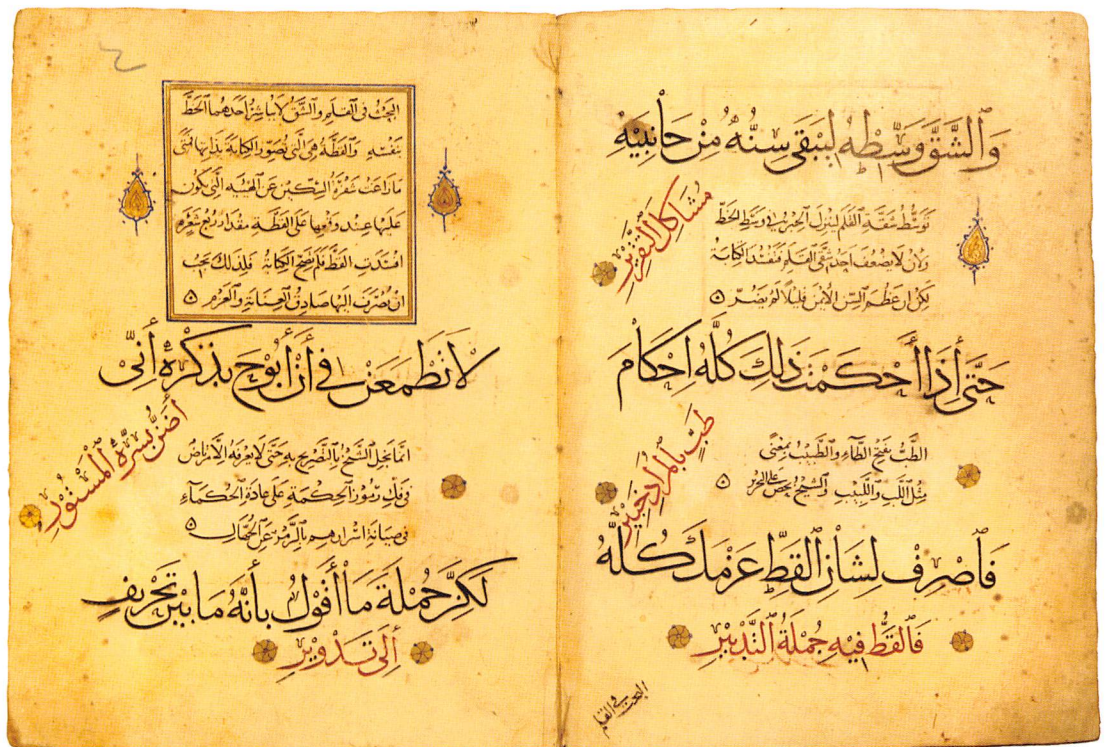 وَالشَّقَّ وَسِّطْهُ لِيَبْقَى سِنُّهُ مِنْ جَانِبَيْهِ
مشاكل التقدير
توسط شقة القلم لينزل الحبر في وسط الخط
ولان لا يضعف احد شقي القلم فتفسد الكتابة
لكن ان عظم السن الايمن قليلا لم يضر
حَتَّى أذَا أَحْكَمْتَ ذَلِكَ كُلَّهُ احْكَامَ
طَبٍّ بالمراد خبير
الطب بفتح الطاء والطبيب بمعنى
مثل اللب واللبيب والشيخ
فَاصْرِفْ لِشَأْنِ القَطِّ عَزْمَكَ كُلَّهُ
فَالقَطُّ فِيهِ جُمْلَةُ التَّدْبِيْرِ
البحث في القلم
البحث في القلم والشق لا يباشر احدهما الخط
بنفسه والقطة هي التي تصور الكتابة بذاتها فمتى
ما زاغت شفرة السكين عن الهيئة التي يكون
عليها عند وقعها على القطة مقدار شعرة
افسدت القط فلم تصح الكتابة فلذلك يجب
ان يصرف اليها صادق العناية والعزم
لَا تَطْمَعَنْ فِي أَنْ أَبُوْحَ بِذِكْرِهِ أَنِّي
أَضَنُّ بِسِرِّهِ المَسْتُوْرِ
انما بخل الشيخ بالتصريح به حتى لا يعرفه الا مرتاض
في فك رموز الحكمة على عادة الحكماء
في صيانة اسرارهم بالرمز عن الجهال
لَكِنَّ جُمْلَةَ مَا أَقُولُ بِأَنَّهُ مَا بَيْنَ تَحْرِيفٍ
أَلَى تَدْوِيْرِ